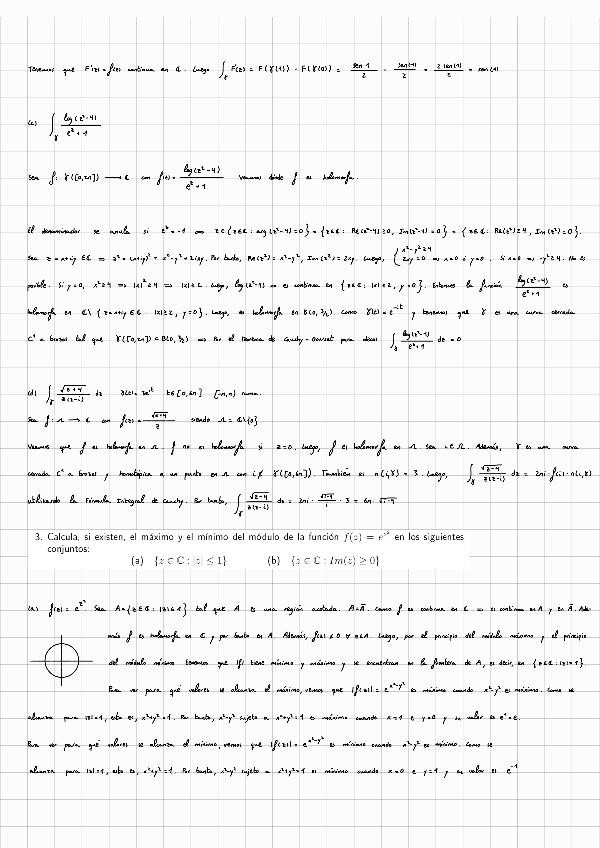 Tenemos que F'(z) = f(z) continua en ℂ. Luego ∫_γ F'(z) = F(γ(1)) - F(γ(0)) = sen 1 / 2 - sen(-1) / 2 = 2 sen(1) / 2 = sen(1)
(c) ∫_γ log(z²-4) / (e^z + 1)
Sea f: γ([0,2π]) → ℂ con f(z) = log(z²-4) / (e^z + 1) Veamos dónde f es holomorfa.
El denominador se anula si e^z = -1 z ∈ {z∈ℂ: arg(z²-4)=0} = {z∈ℂ: Re(z²-4) ≥ 0, Im(z²-4) = 0} = {z∈ℂ: Re(z²) ≥ 4, Im(z²) = 0}.
Sea z = x+iy ∈ ℂ ⇒ z² = (x+iy)² = x²-y²+2ixy. Por tanto, Re(z²) = x²-y², Im(z²) = 2xy. Luego, { x²-y² ≥ 4 2xy = 0 ⇒ x=0 ó y=0. Si x=0 ⇒ -y² ≥ 4. No es
posible. Si y=0, x² ≥ 4 ⇒ |x|² ≥ 4 ⇒ |x| ≥ 2. Luego, log(z²-4) no es continua en {z∈ℂ: |x| ≥ 2, y=0}. Entonces la función log(z²-4) / (e^z + 1) es
holomorfa en ℂ\{z=x+iy∈ℂ |x| ≥ 2, y=0}. Luego, es holomorfa en B(0, 3/2). Como γ(t) = e^{-it} y tenemos que γ es una curva cerrada
C¹ a trozos tal que γ([0,2π]) ⊂ B(0, 3/2) ⇒ Por el Teorema de Cauchy-Goursat para discos ∫_γ log(z²-4) / (e^z + 1) dz = 0
(d) ∫_γ √(z+4) / z(z-i) dz γ(t) = 2e^{it} t∈[0,6π] [-π,π) rama.
Sea f: Ω → ℂ con f(z) = √(z+4) / z siendo Ω = ℂ\{0}
Veamos que f es holomorfa en Ω. f no es holomorfa si z=0. Luego, f es holomorfa en Ω. Sea i∈Ω. Además, γ es una curva
cerrada C¹ a trozos y homotópica a un punto en Ω con i ∉ γ([0,6π]). También es n(i,γ) = 3. Luego, ∫_γ √(z-4) / z(z-i) dz = 2πi · f(i) · n(i,γ)
utilizando la Fórmula Integral de Cauchy. Por tanto, ∫_γ √(z-4) / z(z-i) dz = 2πi · √(i-4) / i · 3 = 6π · √(i-4)
3. Calcula, si existen, el máximo y el mínimo del módulo de la función f(z) = e^{z²} en los siguientes
conjuntos:
(a) {z ∈ ℂ : |z| ≤ 1} (b) {z ∈ ℂ : Im(z) ≥ 0}
(a) f(z) = e^{z²} Sea A = {z∈ℂ : |z| ≤ 1} tal que A es una región acotada. A = Ā. Como f es continua en ℂ ⇒ es continua en A y en Ā. Ade-
más f es holomorfa en ℂ y por tanto en A. Además, f(z) ≠ 0 ∀ z∈A. Luego, por el principio del módulo máximo y el principio
del módulo mínimo tenemos que |f| tiene mínimo y máximo y se encuentran en la frontera de A, es decir, en {z∈ℂ : |z| = 1}.
Para ver para qué valores se alcanza el máximo, vemos que |f(z)| = e^{x²-y²} es máximo cuando x²-y² es máximo. Como se
alcanza para |z|=1, esto es, x²+y²=1. Por tanto, x²-y² sujeto a x²+y²=1 es máximo cuando x=1 e y=0 y su valor es e¹=e.
Para ver para qué valores se alcanza el mínimo, vemos que |f(z)| = e^{x²-y²} es mínimo cuando x²-y² es mínimo. Como se
alcanza para |z|=1, esto es, x²+y²=1. Por tanto, x²-y² sujeto a x²+y²=1 es mínimo cuando x=0 e y=1 y su valor es e^{-1}